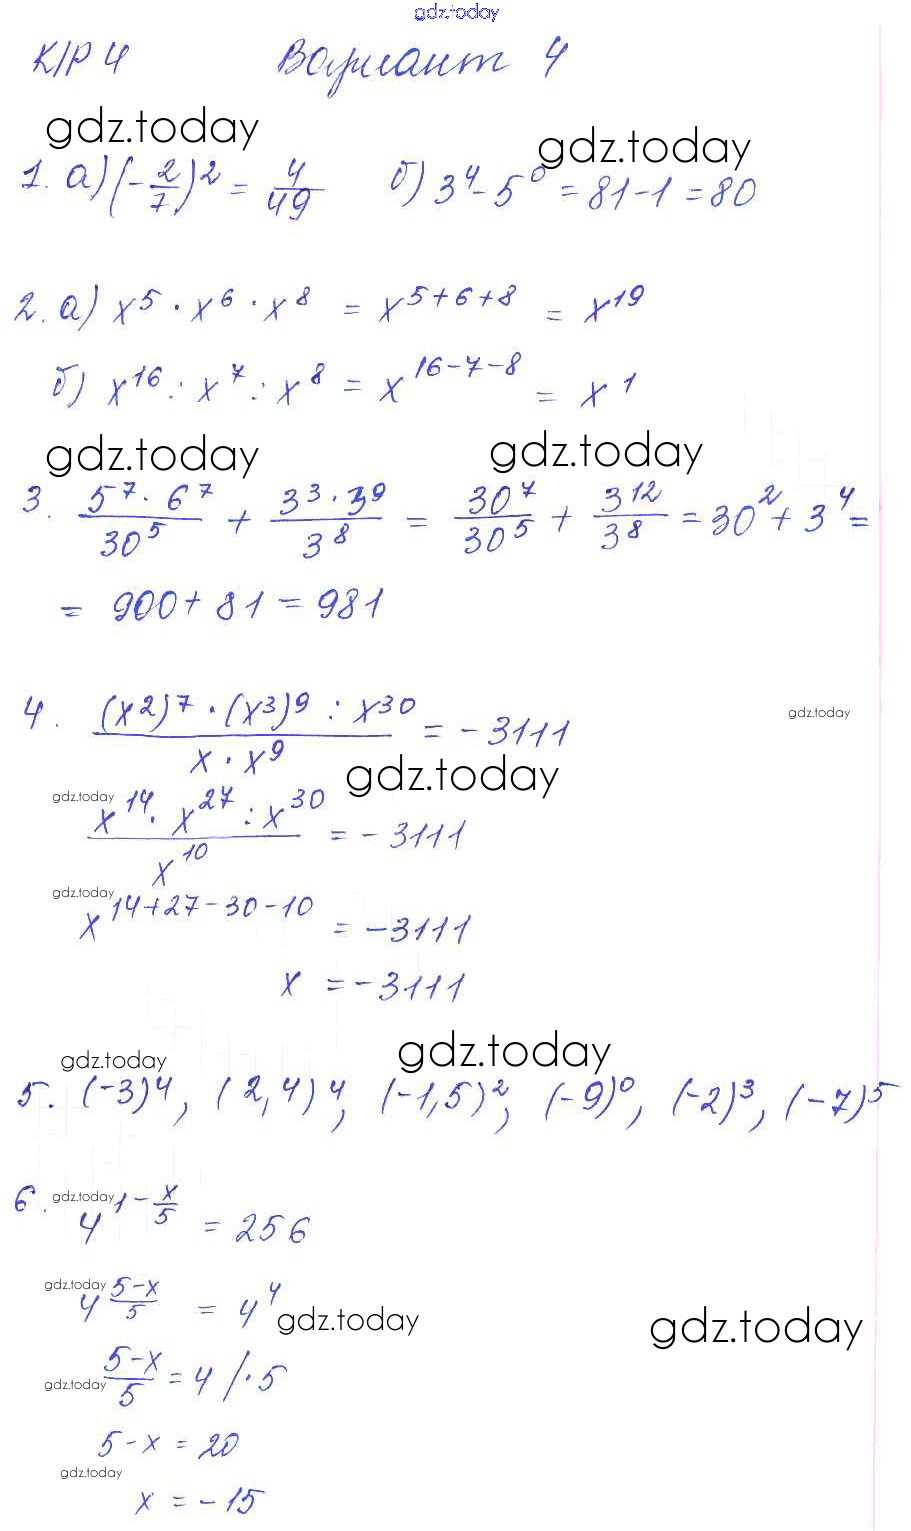 gdz.today
К/Р 4 Вариант 4
gdz.today gdz.today
1. а) (-2/7)^2 = 4/49 б) 3^4 - 5^0 = 81 - 1 = 80
2. а) x^5 · x^6 · x^8 = x^(5+6+8) = x^19
б) x^16 : x^7 : x^8 = x^(16-7-8) = x^1
gdz.today gdz.today
3. (5^7 · 6^7)/30^5 + (3^3 · 3^9)/3^8 = 30^7/30^5 + 3^12/3^8 = 30^2 + 3^4 =
= 900 + 81 = 981
4. ((x^2)^7 · (x^3)^9 : x^30)/(x · x^9) = -3111
gdz.today
gdz.today
gdz.today
(x^14 · x^27 : x^30)/x^10 = -3111
gdz.today
x^(14+27-30-10) = -3111
x = -3111
gdz.today gdz.today
5. (-3)^4, (2,4)^4, (-1,5)^2, (-9)^0, (-2)^3, (-7)^5
gdz.today
6. 4^(1-x/5) = 256
gdz.today
4^((5-x)/5) = 4^4
gdz.today gdz.today
(5-x)/5 = 4 /·5
gdz.today
5-x = 20
gdz.today
x = -15